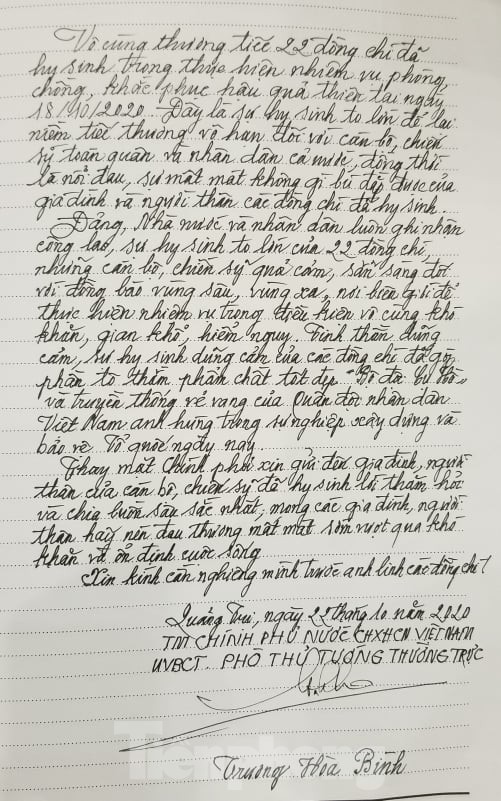 Vô cùng thương tiếc 22 đồng chí đã
hy sinh trong thực hiện nhiệm vụ phòng,
chống, khắc phục hậu quả thiên tai ngày
18/10/2020. Đây là sự hy sinh to lớn để lại
niềm tiếc thương vô hạn đối với cán bộ, chiến
sỹ toàn quân và nhân dân cả nước, đồng thời
là nỗi đau, sự mất mát không gì bù đắp được của
gia đình và người thân các đồng chí đã hy sinh.
Đảng, Nhà nước và nhân dân luôn ghi nhận
công lao, sự hy sinh to lớn của 22 đồng chí,
những cán bộ, chiến sỹ quả cảm, sẵn sàng đối
với đồng bào vùng sâu, vùng xa, nơi biên giới để
thực hiện nhiệm vụ trong điều kiện vô cùng khó
khăn, gian khổ, hiểm nguy. Tinh thần dũng
cảm, sự hy sinh dũng cảm của các đồng chí đã góp
phần tô thắm phẩm chất tốt đẹp "Bộ đội Cụ Hồ"
và truyền thống vẻ vang của Quân đội nhân dân
Việt Nam anh hùng trong sự nghiệp xây dựng và
bảo vệ Tổ quốc ngày nay.
Thay mặt Chính phủ xin gửi đến gia đình, người
thân của cán bộ, chiến sỹ đã hy sinh lời thăm hỏi
và chia buồn sâu sắc nhất, mong các gia đình, người
thân hãy nén đau thương mất mát sớm vượt qua khó
khăn và ổn định cuộc sống.
Xin kính cẩn nghiêng mình trước anh linh các đồng chí!
Quảng Trị, ngày 22 tháng 10 năm 2020
TM CHÍNH PHỦ NƯỚC CHXHCN VIỆT NAM
UVBCT PHÓ THỦ TƯỚNG THƯỜNG TRỰC
Trương Hòa Bình
Tienphong